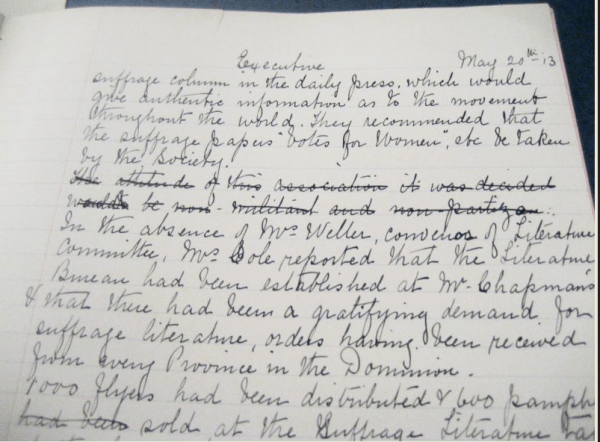 Executive May 20th 13
suffrage column in the daily press, which would
give authentic information as to the movement
throughout the world. They recommended that
the suffrage papers "Votes for Women", etc be taken
by the Society.
The attitude of this association it was decided
would be non-militant and non-partizan.
In the absence of Mrs Weller, convenor of Literature
Committee, Mrs Cole reported that the Literature
Bureau had been established at Mr. Chapman's
& that there had been a gratifying demand for
suffrage literature, orders having been received
from every Province in the Dominion.
1000 flyers had been distributed & 600 pamph
had been sold at the Suffrage Literature